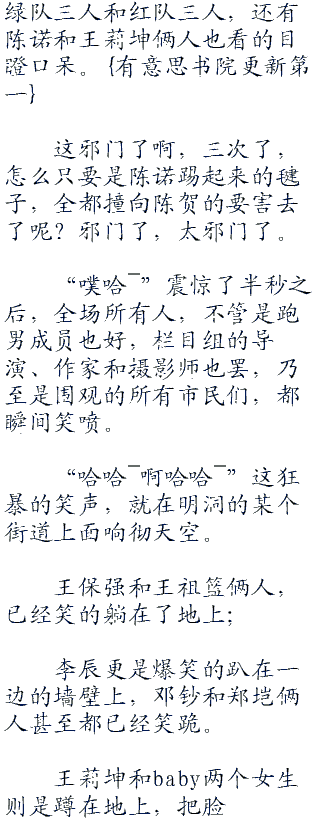 绿队三人和红队三人，还有
陈诺和王莉坤俩人也看的目
瞪口呆。{有意思书院更新第
一}
这邪门了啊，三次了，
怎么只要是陈诺踢起来的毽
子，全都撞向陈贺的要害去
了呢？邪门了，太邪门了。
“噗哈¯”震惊了半秒之
后，全场所有人，不管是跑
男成员也好，栏目组的导
演、作家和摄影师也罢，乃
至是围观的所有市民们，都
瞬间笑喷。
“哈哈¯啊哈哈¯”这狂
暴的笑声，就在明洞的某个
街道上面响彻天空。
王保强和王祖篮俩人，
已经笑的躺在了地上；
李辰更是爆笑的趴在一
边的墙壁上，邓钞和郑垲俩
人甚至都已经笑跪。
王莉坤和baby两个女生
则是蹲在地上，把脸